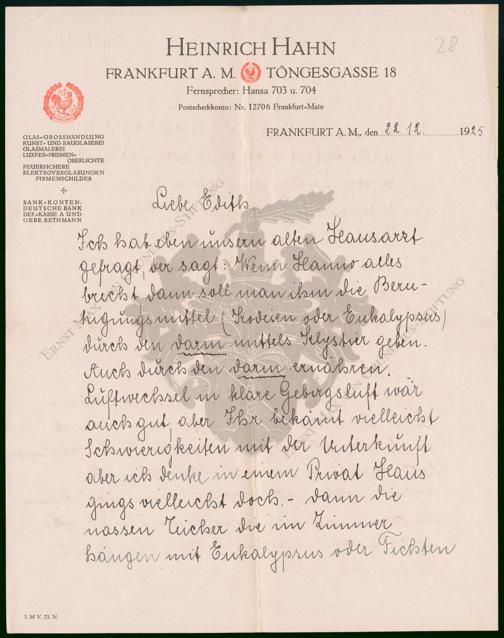 28
HEINRICH HAHN
FRANKFURT A. M. TÖNGESGASSE 18
Fernsprecher: Hansa 703 u. 704
Postscheckkonto: Nr. 12706 Frankfurt-Main
FRANKFURT A. M., den 22.12. 1925
GLAS-GROSSHANDLUNG
KUNST- UND BAUGLASEREI
GLASMALEREI
LUXFER-PRISMEN-
OBERLICHTE
FEUERSICHERE
ELEKTROVERGLASUNGEN
FIRMENSCHILDER
BANK-KONTEN:
DEUTSCHE BANK
DEP.-KASSE A UND
GEBR. BETHMANN
Liebe Edith
Ich hab eben unsern alten Hausarzt
gefragt, der sagt: Wenn Hanno alles
bricht dann soll man ihm die Beru-
higungsmittel (Kodein oder Eukalypsus)
durch den darm mittels Klystier geben.
Auch durch den darm ernähren.
Luftwechsel in klare Gebirgsluft wär
auch gut aber Ihr bekämt vielleicht
Schwierigkeiten mit der Unterkunft
aber ich denke in einem Privat Haus
gings vielleicht doch.- dann die
nassen Tücher die im Zimmer
hängen mit Eukalypsus oder Fichten
3. M V. 23. N.
ERNST MAX VON GRUNELIUS-STIFTUNG
ERNST MAX VON GRUNELIUS-STIFTUNG